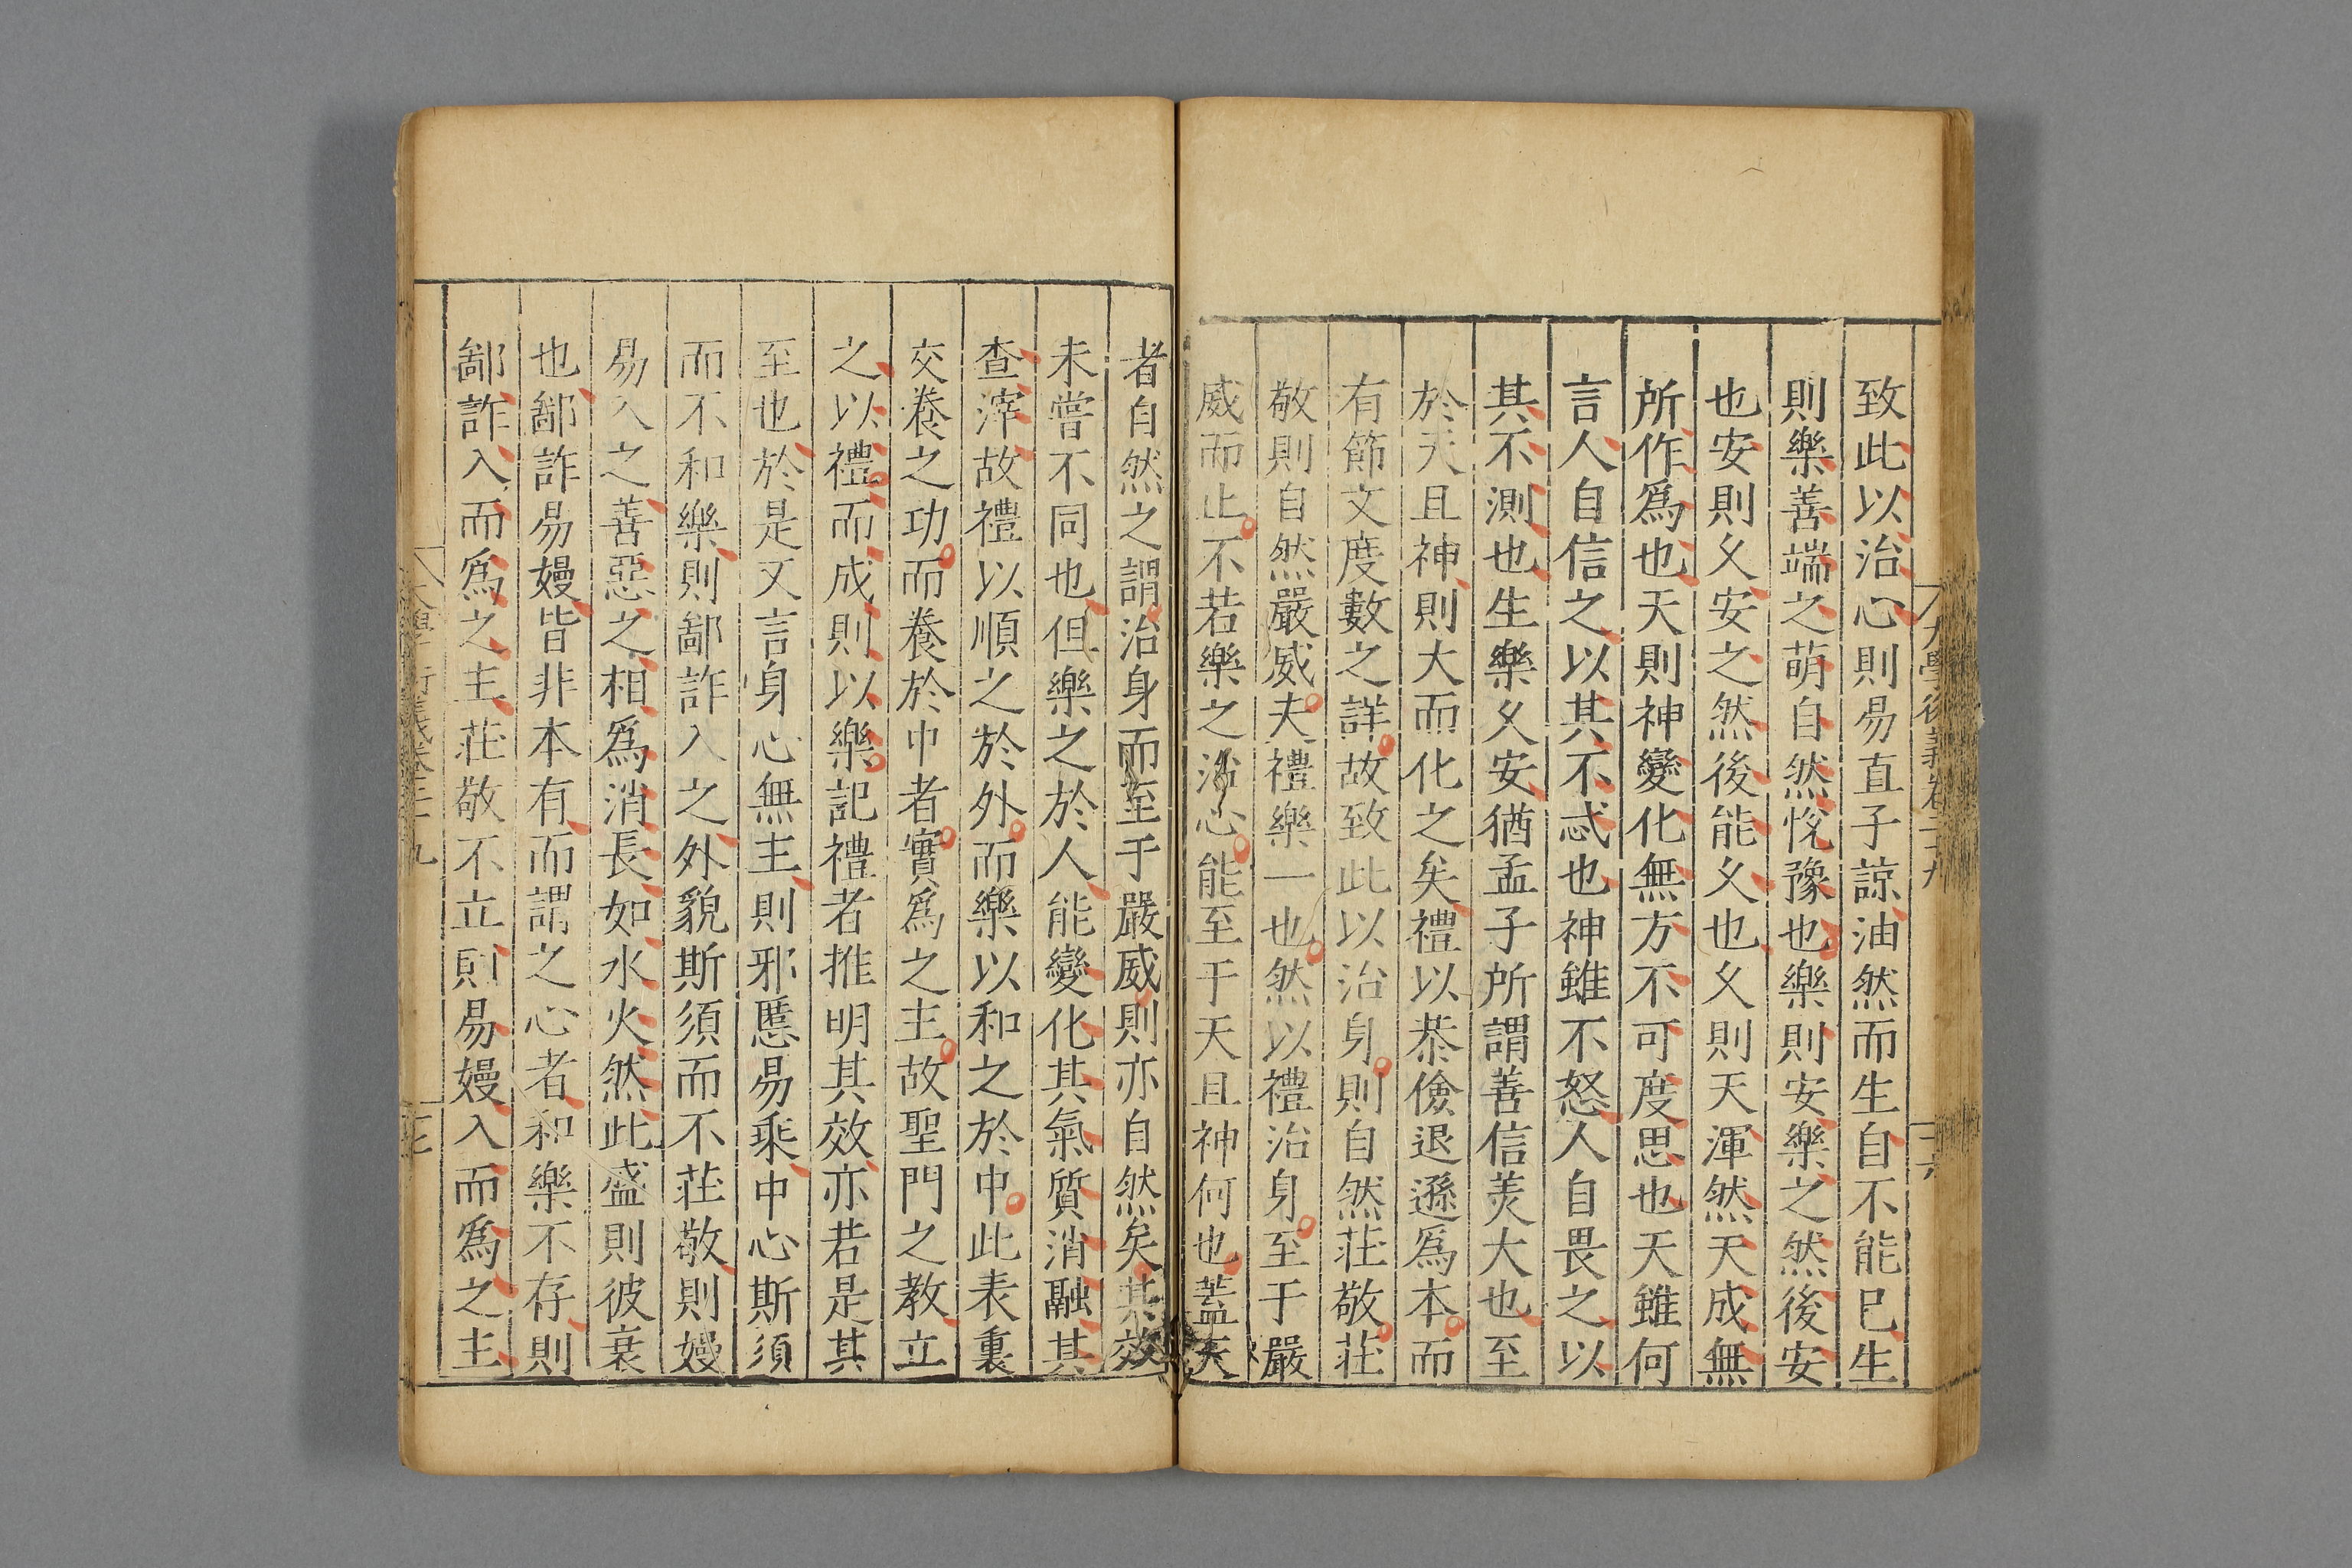 致此以治心則易直子諒油然而生自不能已生
則樂善端之萌自然悅豫也樂則安樂之然後安
也安則久安之然後能久也久則天渾然天成無
所作爲也天則神變化無方不可度思也天雖何
言人自信之以其不忒也神雖不怒人自畏之以
其不測也生樂久安猶孟子所謂善信美大也至
於天且神則大而化之矣禮以恭儉退遜爲本而
有節文度數之詳故致此以治身則自然莊敬莊
敬則自然嚴威夫禮樂一也然以禮治身至于嚴
威而止不若樂之治心能至于天且神何也蓋天
者自然之謂治身而至于嚴威則亦自然矣其效
未嘗不同也但樂之於人能變化其氣質消融其
查滓故禮以順之於外而樂以和之於中此表裏
交養之功而養於中者實爲之主故聖門之教立
之以禮而成則以樂記禮者推明其效亦若是其
至也於是又言身心無主則邪慝易乘中心斯須
而不和樂則鄙詐入之外貌斯須而不莊敬則嫚
易入之善惡之相爲消長如水火然此盛則彼衰
也鄙詐易嫚皆非本有而謂之心者和樂不存則
鄙詐入而爲之主莊敬不立則易嫚入而爲之主